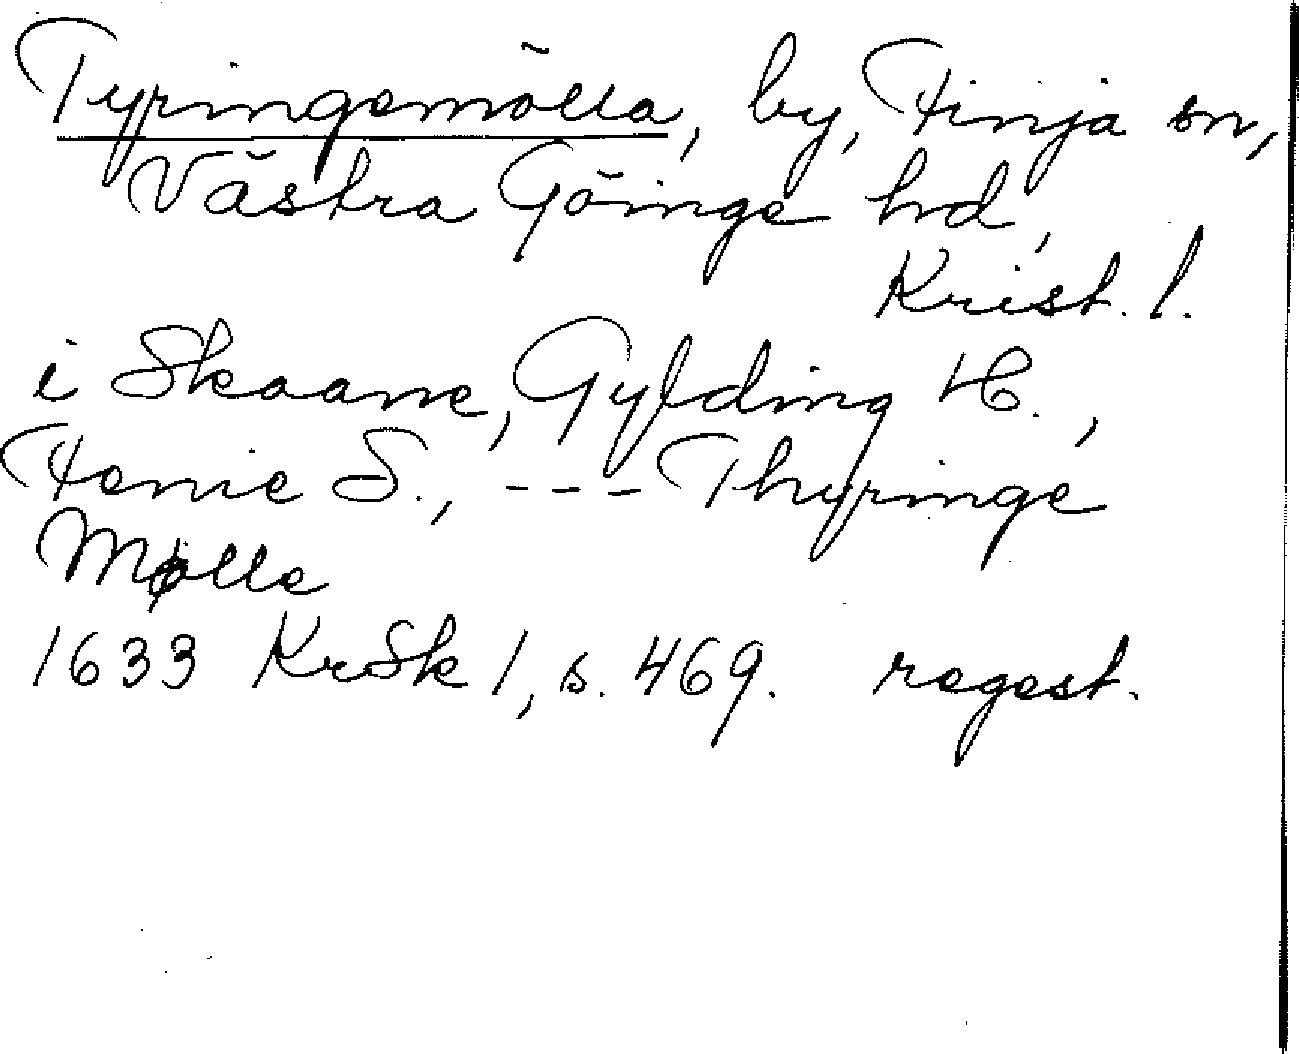 Tyringemölla, by, Finja sn,
Västra Göinge hd,
Krist. l.
i Skaane, Gylding H.,
Fenie S., --- Thyringe
Mølle
1633 KrSk 1, s. 469. regest.